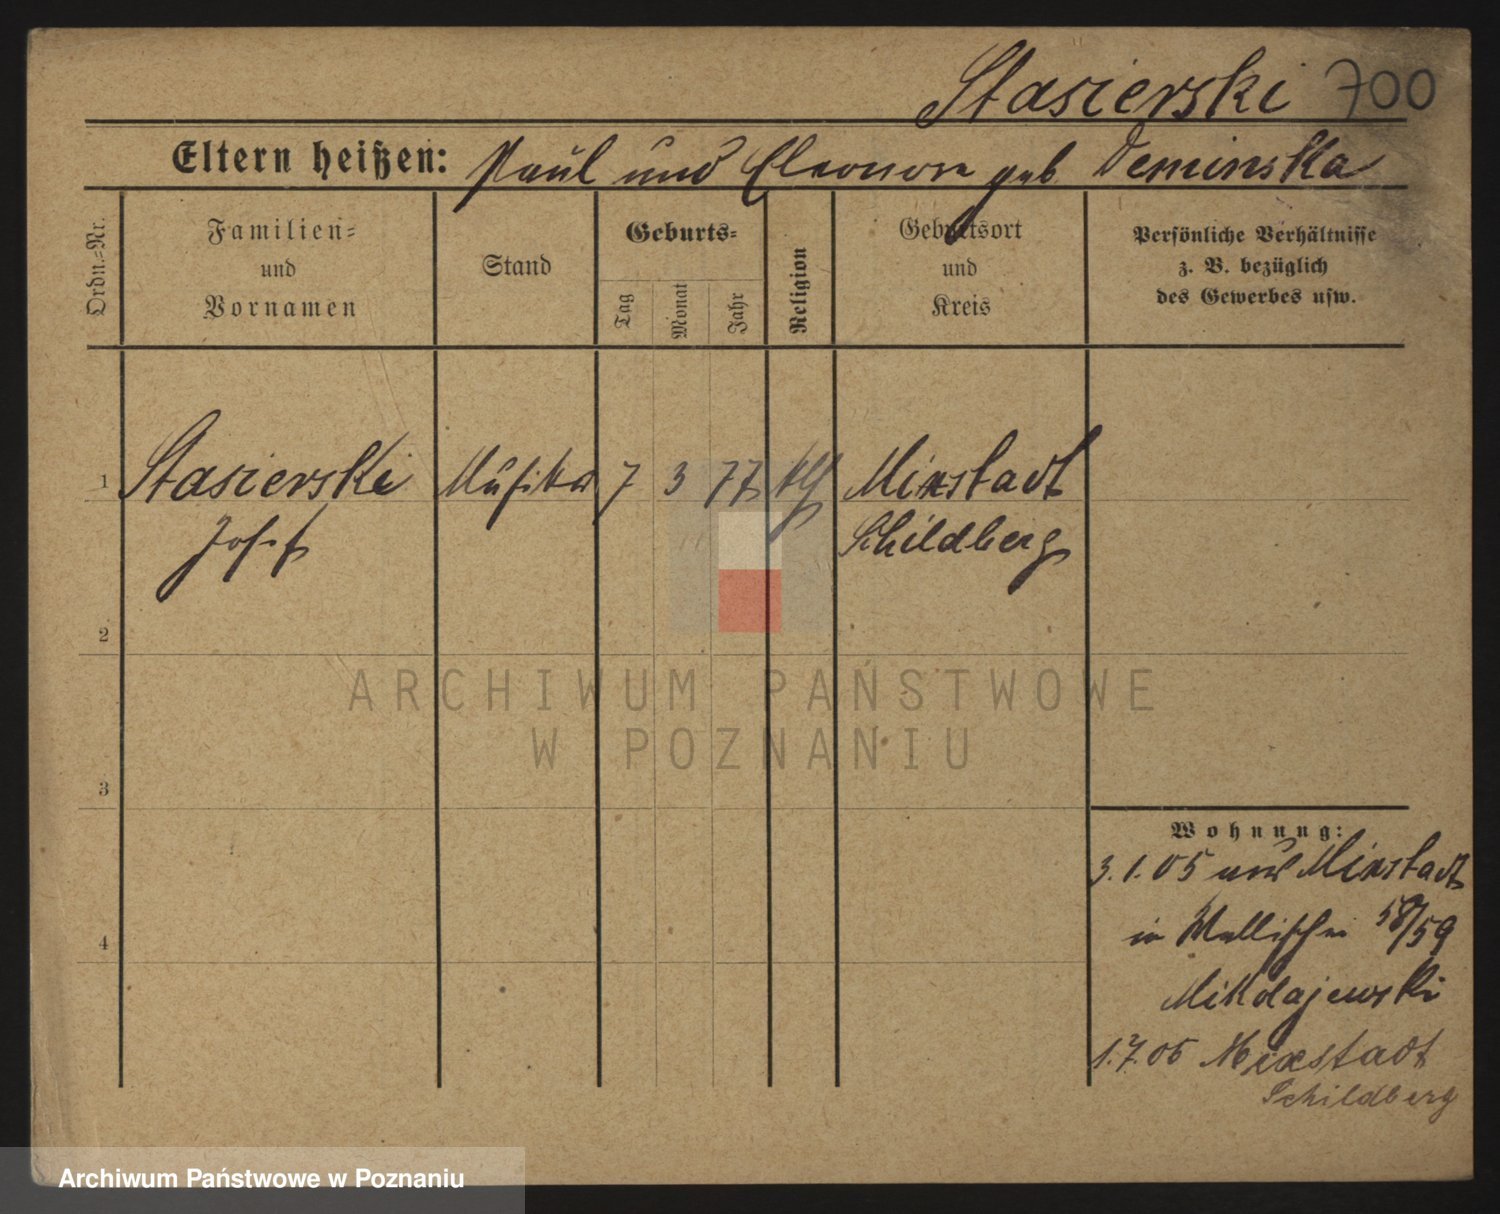 Stasierski 700
Eltern heißen: Paul und Eleonore geb Deminska
Ordn.-Nr.
Familien-
und
Vornamen
Stand
Geburts-
Tag
Monat
Jahr
Religion
Geburtsort
und
Kreis
Persönliche Verhältnisse
z. B. bezüglich
des Gewerbes usw.
1 Stasierski Musiker 7 3 77 Mixstadt
Josef Schildberg
2
ARCHIWUM PAŃSTWOWE
W POZNANIU
3
Wohnung:
3.1.05 Mixstadt
in Wallischei 58/59
4
Mikolajewski
1.7.05 Mixstadt
Schildberg
Archiwum Państwowe w Poznaniu